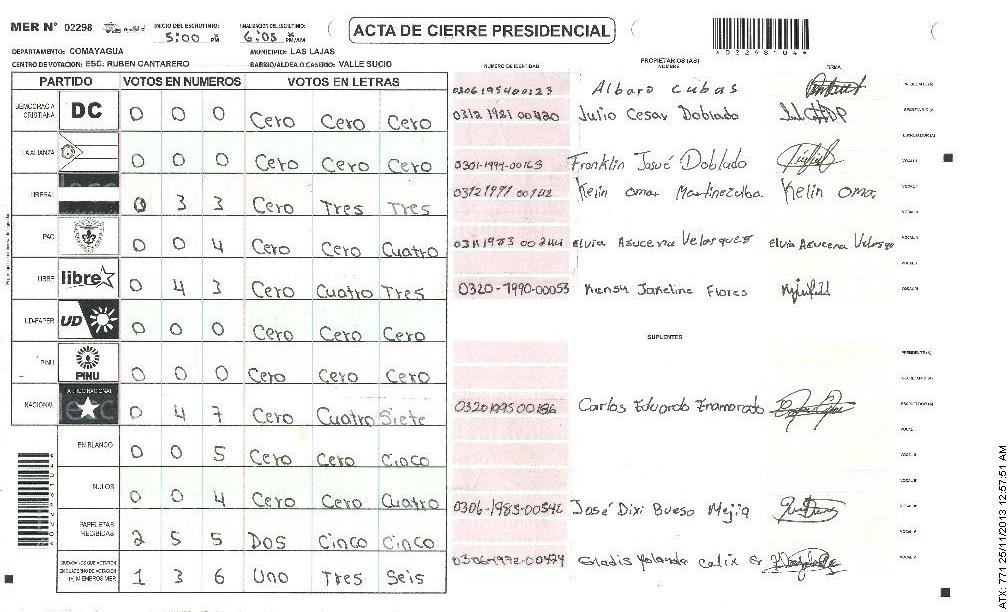 MER N° 02298 INICIO DEL ESCRUTINIO: 5:00 PM FINALIZACION DEL ESCRUTINIO: 6:05 PM/AM
ACTA DE CIERRE PRESIDENCIAL
DEPARTAMENTO: COMAYAGUA MUNICIPIO: LAS LAJAS
CENTRO DE VOTACION: ESC. RUBEN CANTARERO BARRIO/ALDEA O CASERIO: VALLE SUCIO
PARTIDO VOTOS EN NUMEROS VOTOS EN LETRAS
DEMOCRACIA CRISTIANA DC 0 0 0 Cero Cero Cero
LA ALIANZA 0 0 0 Cero Cero Cero
LIBERAL 0 3 3 Cero Tres Tres
PAC 0 0 4 Cero Cero Cuatro
LIBRE libre 0 4 3 Cero Cuatro Tres
UD-FAPER UD 0 0 0 Cero Cero Cero
PINU PINU 0 0 0 Cero Cero Cero
NACIONAL 0 4 7 Cero Cuatro Siete
EN BLANCO 0 0 5 Cero Cero Cinco
NULOS 0 0 4 Cero Cero Cuatro
PAPELETAS RECIBIDAS 2 5 5 Dos Cinco Cinco
CIUDADANOS QUE VOTARON EN CUADERNO DE VOTACION (+) MIEMBROS MER 1 3 6 Uno Tres Seis
PROPIETARIOS (AS)
NUMERO DE IDENTIDAD NOMBRE FIRMA
0306195400123 Albaro cubas PRESIDENTE (A)
0312 1981 00420 Julio Cesar Doblado SECRETARIO (A)
ESCRUTADOR (A)
0301-1999-00163 Franklin José Doblado VOCAL I
03121971 00142 Kelin omar Kelin omar
0311 1983 00244 Elvia Azucena Velasquez Elvia Azucena
0320-1990-00053 Kensy Jakeline Flores
SUPLENTES
PRESIDENTE (A)
SECRETARIO (A)
0320199500186 Carlos Eduardo Enamorado ESCRUTADOR (A)
0306-1985-00542 José Dixi Bueso Mejia
0306-1972-00474 Gladis Yolanda Calix
ATX: 771 25/11/2013 12:57:51 AM